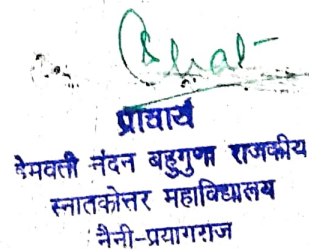 प्राचार्य
हेमवती नंदन बहुगुणा राजकीय
स्नातकोत्तर महाविद्यालय
नैनी-प्रयागराज